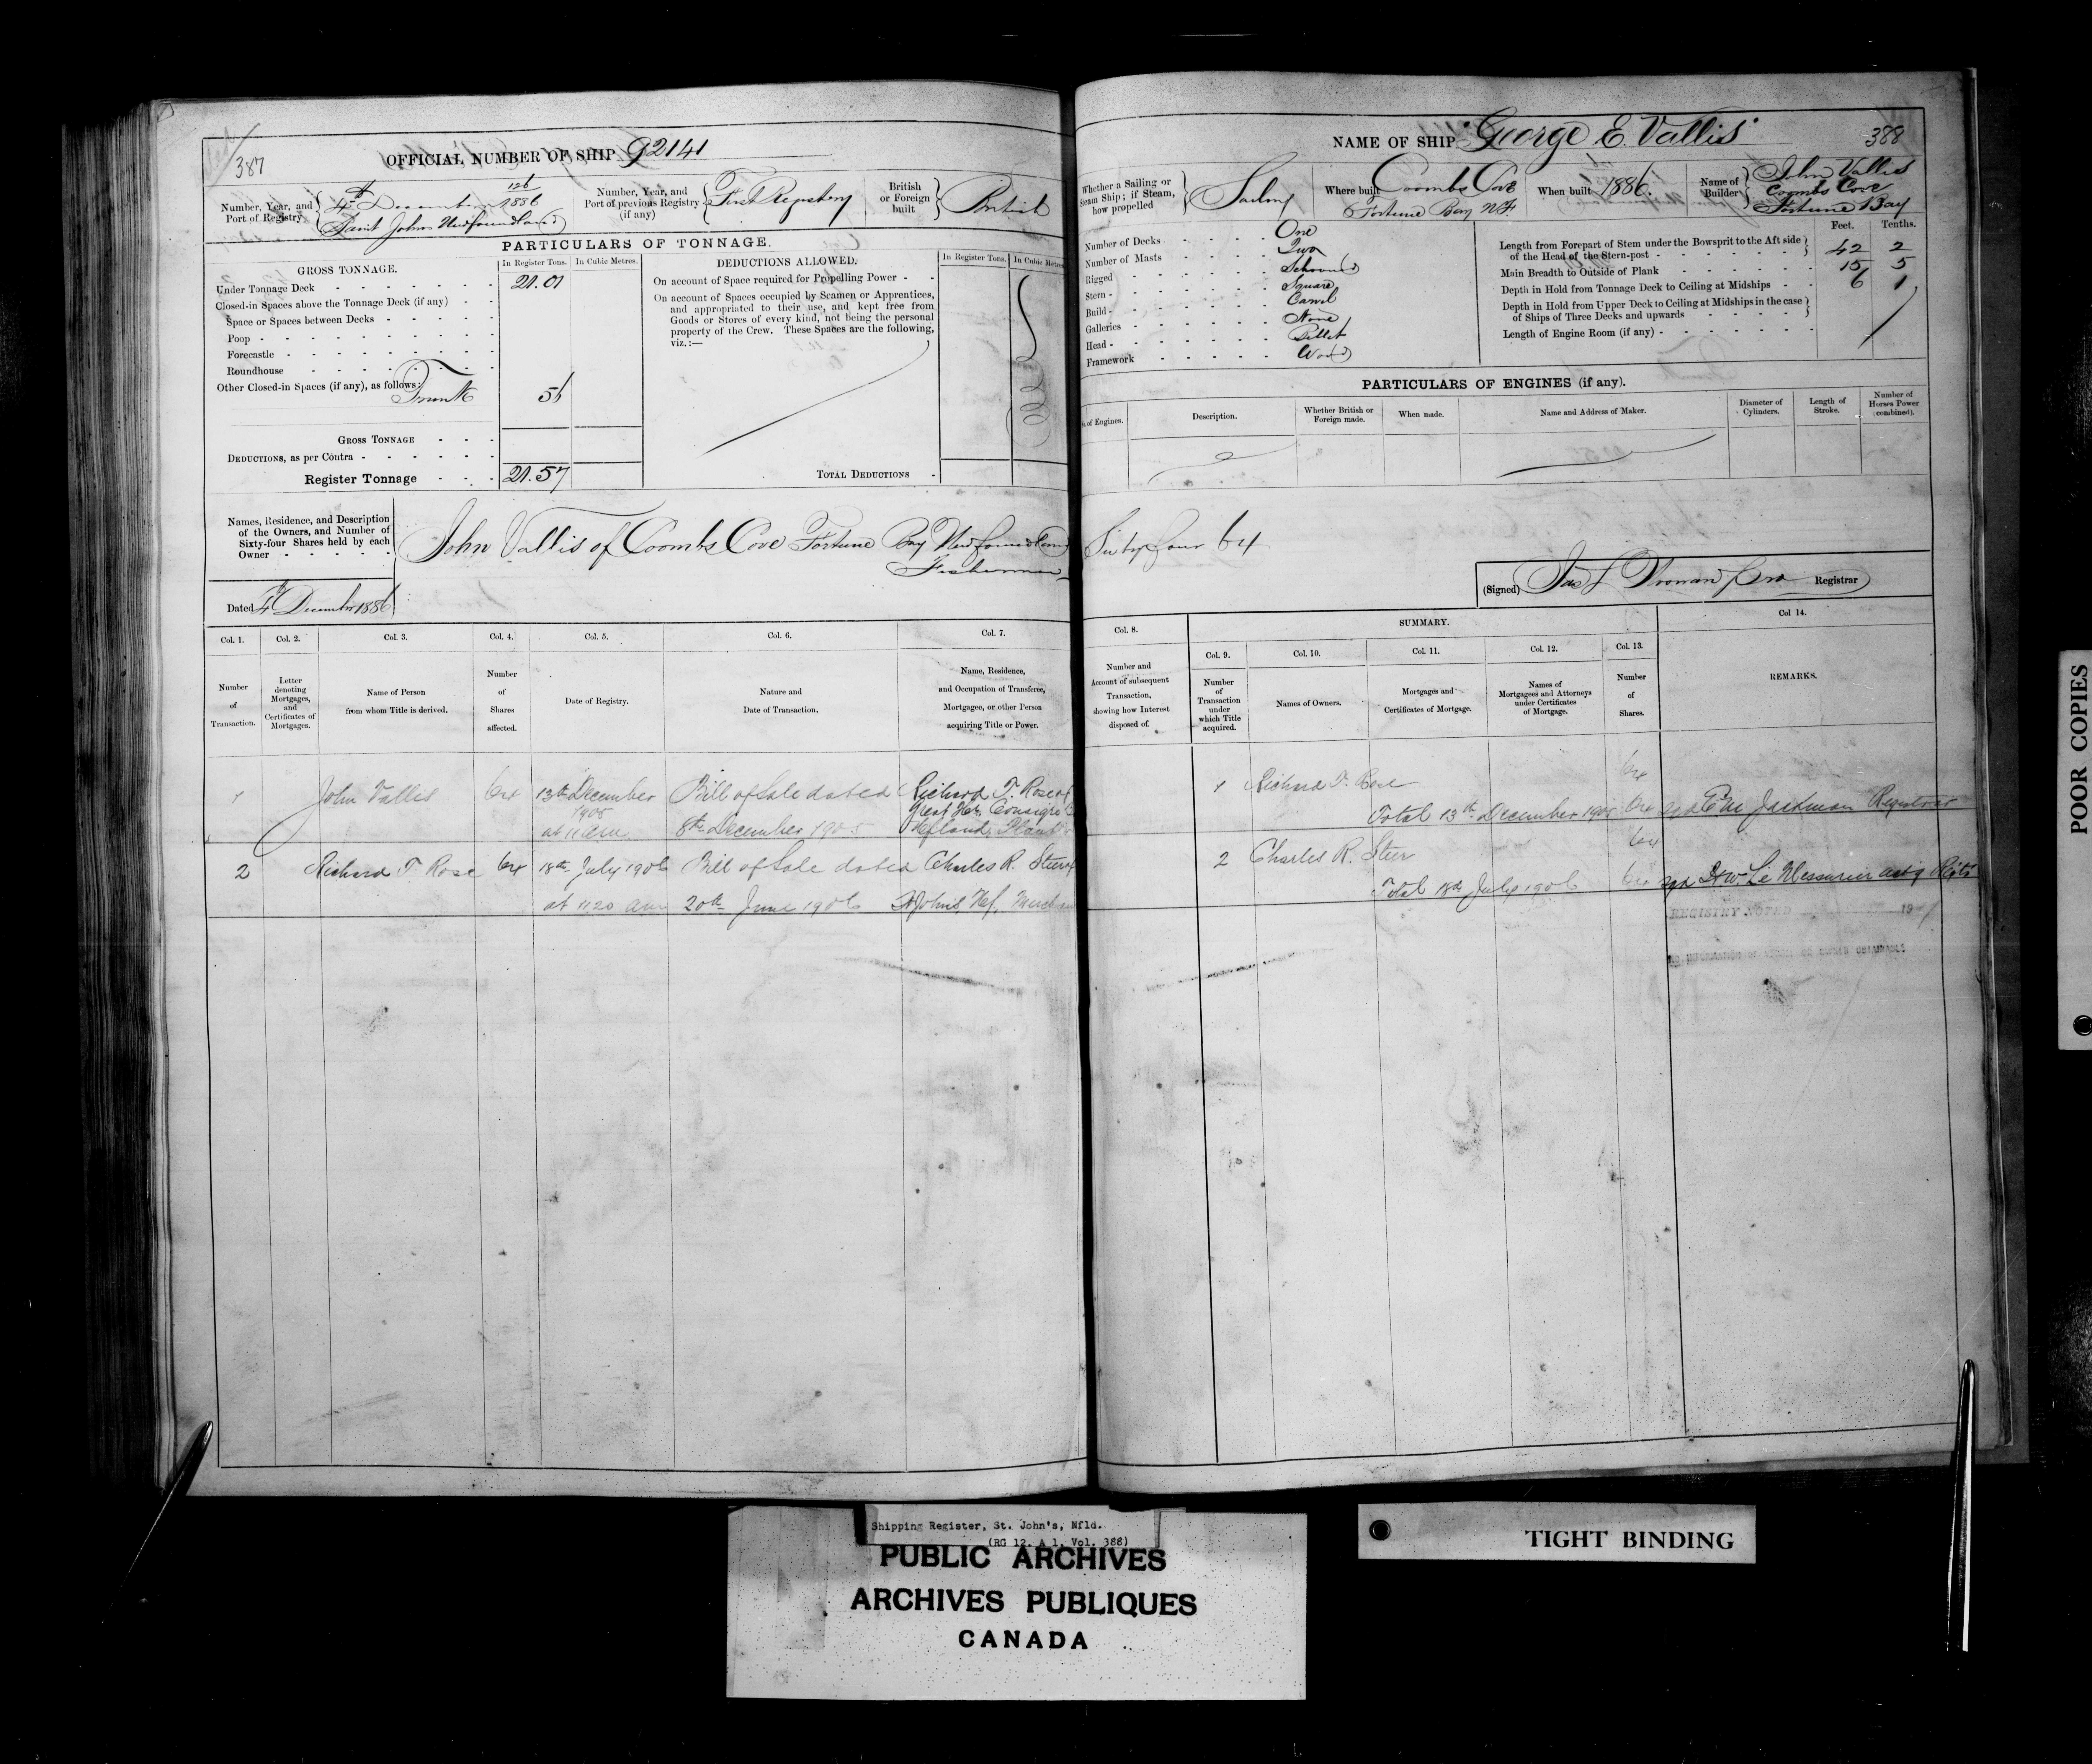 387
OFFICIAL NUMBER OF SHIP 92141
Number, Year, and Port of Registry
126
4th December 1886
Saint Johns Newfoundland
Number, Year, and Port of previous Registry (if any)
First Registry
British or Foreign built
British
PARTICULARS OF TONNAGE.
GROSS TONNAGE.
In Register Tons.
In Cubic Metres.
DEDUCTIONS ALLOWED.
In Register Tons.
In Cubic Metres
Under Tonnage Deck 21.01
Closed-in Spaces above the Tonnage Deck (if any)
Space or Spaces between Decks
Poop
Forecastle
Roundhouse
Other Closed-in Spaces (if any), as follows:
Trunk 56
GROSS TONNAGE
DEDUCTIONS, as per Contra
Register Tonnage 21.57
On account of Space required for Propelling Power
On account of Spaces occupied by Seamen or Apprentices,
and appropriated to their use, and kept free from
Goods or Stores of every kind, not being the personal
property of the Crew. These Spaces are the following,
viz.:—
TOTAL DEDUCTIONS
Names, Residence, and Description
of the Owners, and Number of
Sixty-four Shares held by each
Owner
John Vallis of Coombs Cove Fortune Bay Newfoundland
Fisherman
Dated 4th December 1886
Col. 1.
Number of Transaction.
Col. 2.
Letter denoting Mortgages, and Certificates of Mortgages.
Col. 3.
Name of Person from whom Title is derived.
Col. 4.
Number of Shares affected.
Col. 5.
Date of Registry.
Col. 6.
Nature and Date of Transaction.
Col. 7.
Name, Residence, and Occupation of Transferee, Mortgagee, or other Person acquiring Title or Power.
1 John Vallis 64 13th December Bill of Sale dated Richard T. Rose of
1905
at 11 am 8th December 1905
2 Richard T Rose 64 18th July 1906 Bill of Sale dated Charles R. Steer of
at 11.20 am 20th June 1906 St Johns, Nf,
NAME OF SHIP "George E. Vallis"
388
Whether a Sailing or Steam Ship; if Steam, how propelled
Sailing
Where built
Coombs Cove
Fortune Bay NF
When built 1886.
Name of Builder
John Vallis
Coombs Cove
Fortune Bay
Number of Decks One
Number of Masts Two
Rigged Schooner
Stern Square
Build Carvel
Galleries None
Head Billet
Framework Wood
Feet. Tenths.
Length from Forepart of Stem under the Bowsprit to the Aft side
of the Head of the Stern-post 42 2
Main Breadth to Outside of Plank 15 5
Depth in Hold from Tonnage Deck to Ceiling at Midships 6 1
Depth in Hold from Upper Deck to Ceiling at Midships in the case
of Ships of Three Decks and upwards
Length of Engine Room (if any)
PARTICULARS OF ENGINES (if any).
of Engines.
Description.
Whether British or Foreign made.
When made.
Name and Address of Maker.
Diameter of Cylinders.
Length of Stroke.
Number of Horses Power (combined).
Sixty four 64
(Signed)
Registrar
Col. 8.
Number and Account of subsequent Transaction, showing how Interest disposed of.
SUMMARY.
Col. 9.
Number of Transaction under which Title acquired.
Col. 10.
Names of Owners.
Col. 11.
Mortgages and Certificates of Mortgage.
Col. 12.
Names of Mortgagees and Attorneys under Certificates of Mortgage.
Col. 13.
Number of Shares.
Col 14.
REMARKS.
1 Richard T. Rose 64
Total 13th December 1905 64 sgd Jackman Registrar
2 Charles R. Steer 64
Total 18th July 1906 64 sgd H W Le Messurier
REGISTRY NOTED 19
POOR COPIES
Shipping Register, St. John's, Nfld.
(RG 12, A 1, Vol. 388)
PUBLIC ARCHIVES
ARCHIVES PUBLIQUES
CANADA
TIGHT BINDING